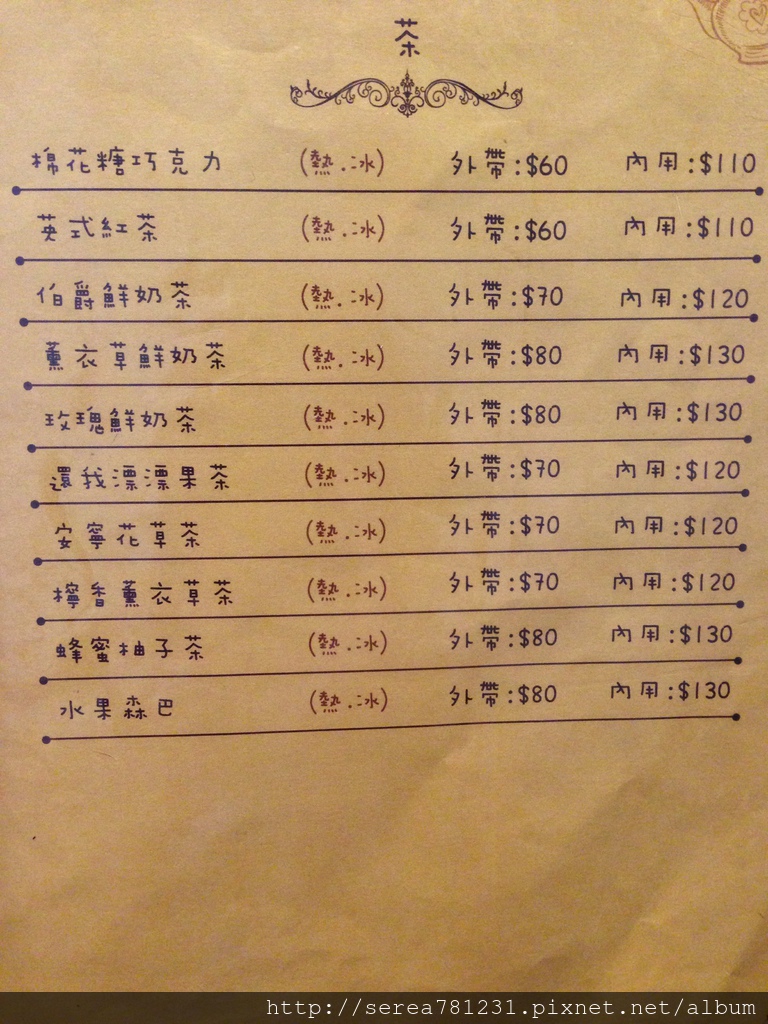 茶
棉花糖巧克力 (熱.冰) 外帶:$60 內用:$110
英式紅茶 (熱.冰) 外帶:$60 內用:$110
伯爵鮮奶茶 (熱.冰) 外帶:$70 內用:$120
薰衣草鮮奶茶 (熱.冰) 外帶:$80 內用:$130
玫瑰鮮奶茶 (熱.冰) 外帶:$80 內用:$130
還我漂漂果茶 (熱.冰) 外帶:$70 內用:$120
安寧花草茶 (熱.冰) 外帶:$70 內用:$120
檸香薰衣草茶 (熱.冰) 外帶:$70 內用:$120
蜂蜜柚子茶 (熱.冰) 外帶:$80 內用:$130
水果森巴 (熱.冰) 外帶:$80 內用:$130
http://serea781231.pixnet.net/album